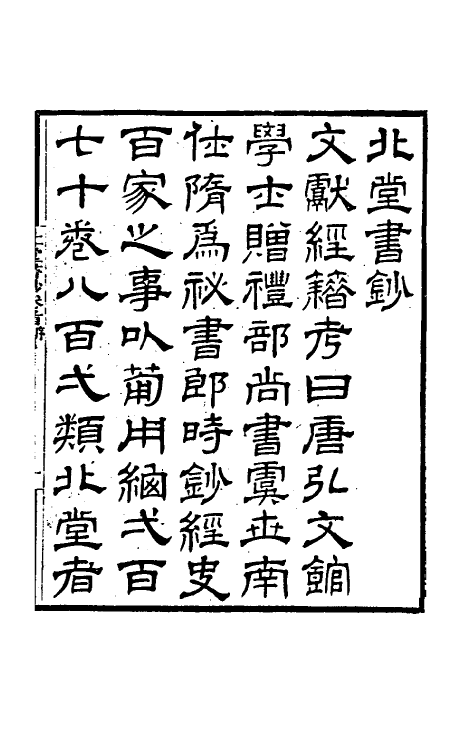 北堂書鈔
文獻經籍考曰唐弘文館
學士贈禮部尚書虞世南
仕隋爲祕書郎時鈔經史
百家之事以葡用緬弍百
七十卷八百弌類北堂者